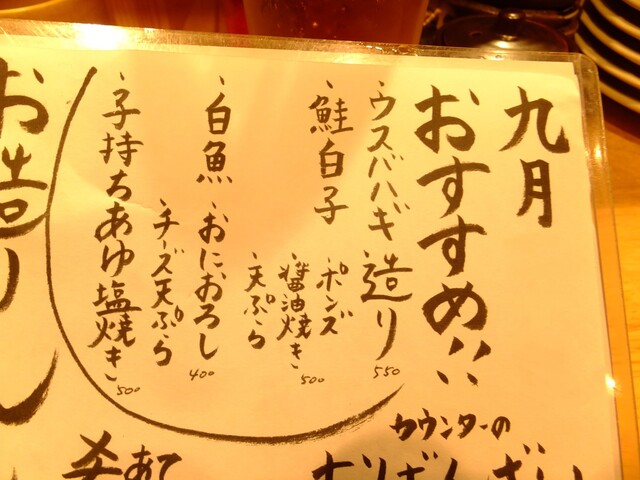 九月
おすすめ!!
・ウスバハギ 造り 550
・鮭白子 ・ポンズ
・醤油焼き 500
・天ぷら
・白魚 ・おにおろし 400
・チーズ天ぷら
・子持ちあゆ塩焼き 500
お造り
カウンターの